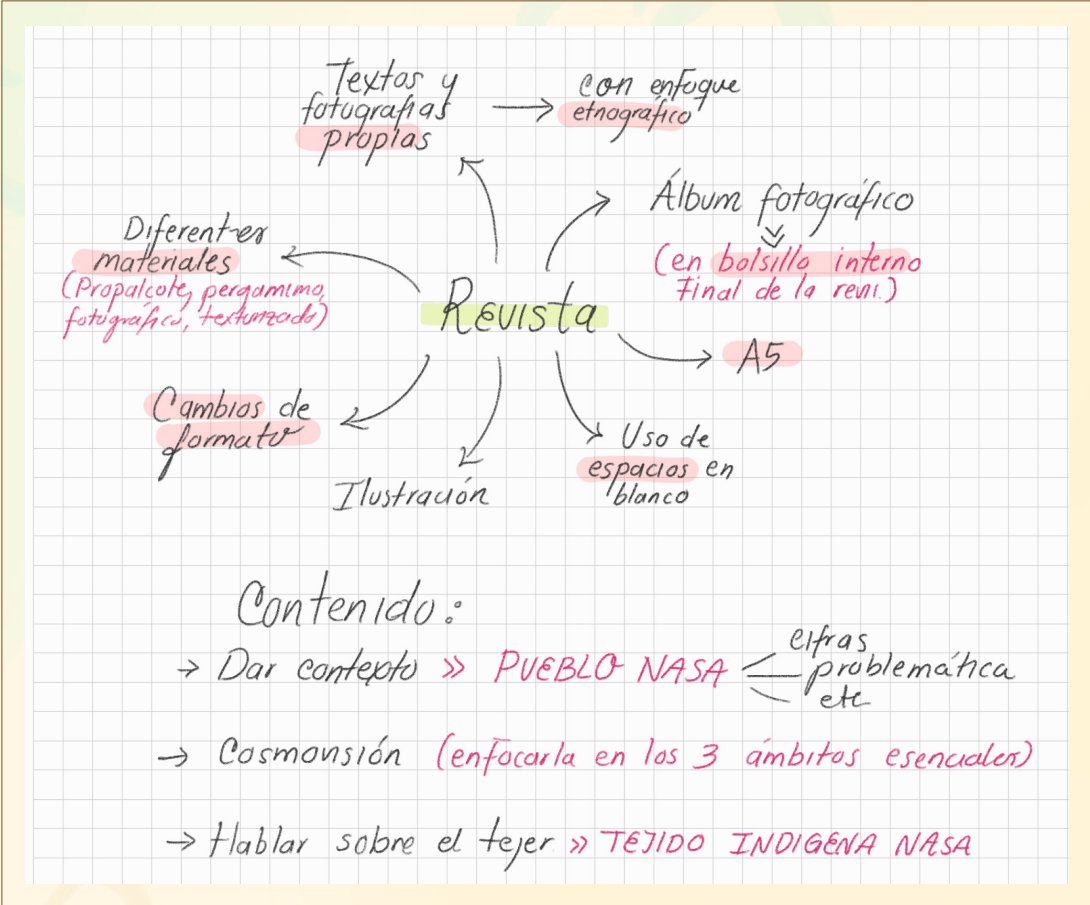 Textos y
fotografías
propias
con enfoque
etnográfico
Álbum fotográfico
(en bolsillo interno
Final de la revi.)
Diferentes
materiales
(Propalcote, pergamimo,
fotográfico, texturizado)
Revista
A5
Cambios de
formato
Uso de
espacios en
blanco
Ilustración
Contenido:
→ Dar contexto » PUEBLO NASA
cifras
problemática
etc
→ Cosmovisión (enfocarla en los 3 ámbitos esenciales)
→ Hablar sobre el tejer » TEJIDO INDIGENA NASA